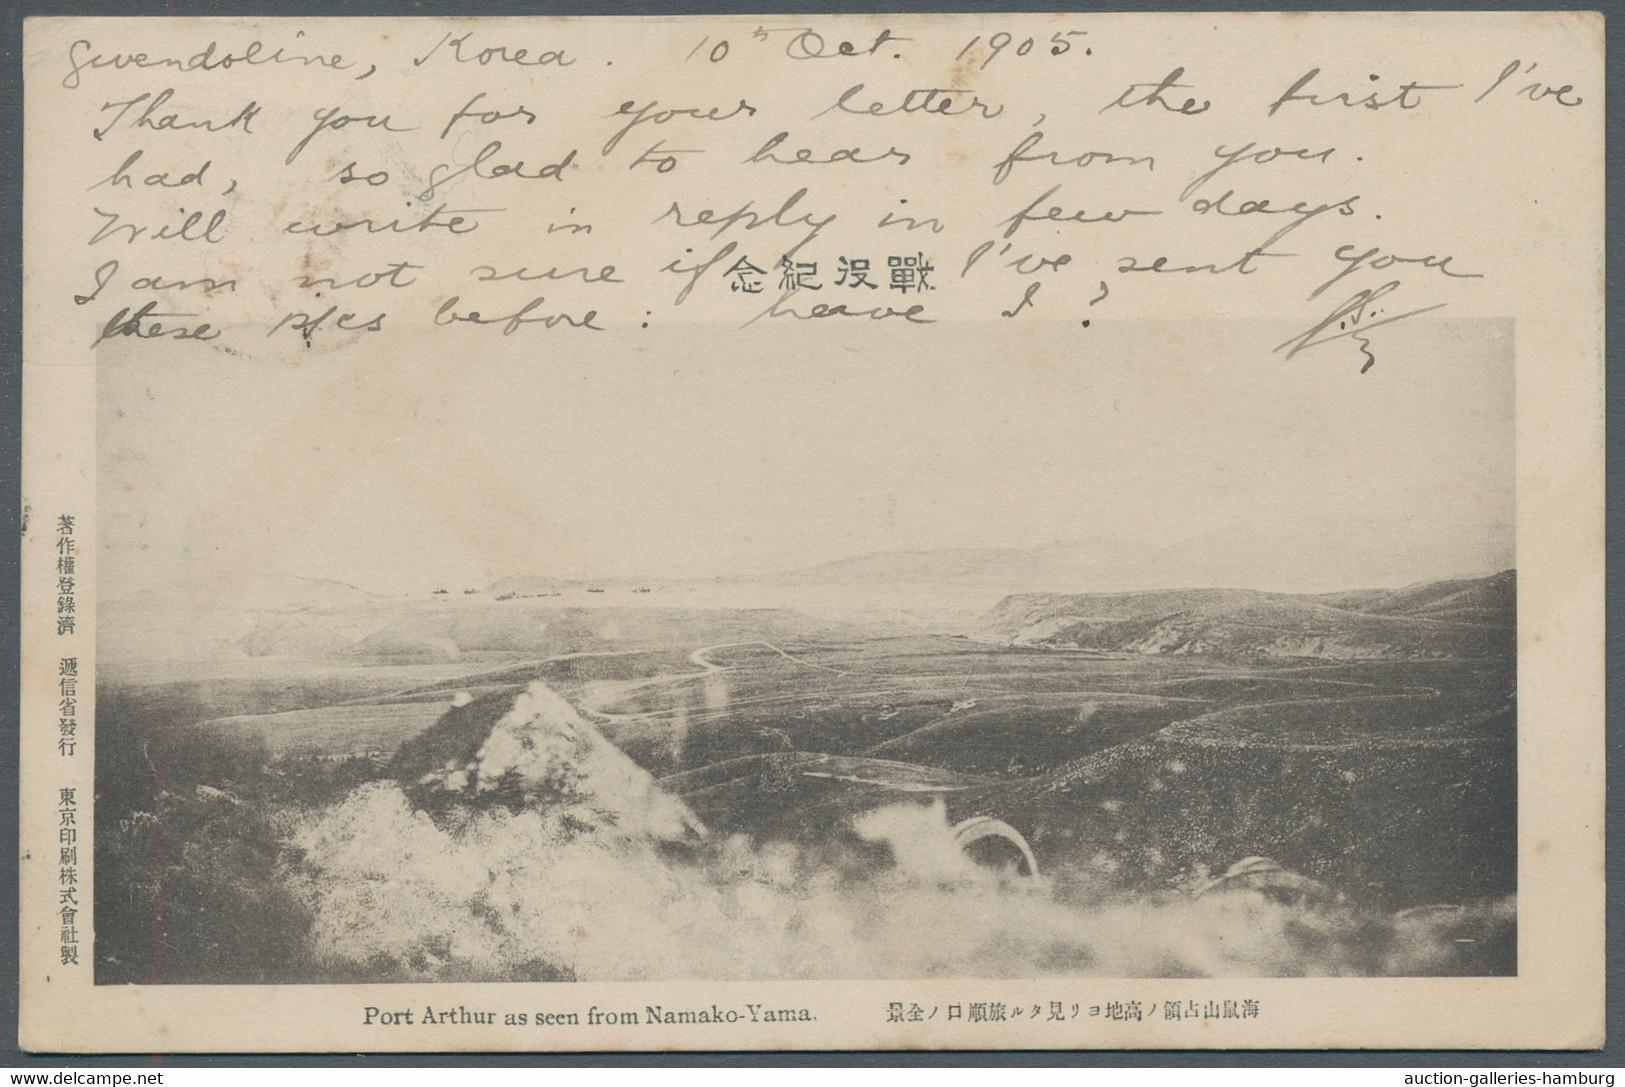 Gwendoline, Korea. 10th Oct. 1905.
Thank you for your letter, the first I've
had, so glad to hear from you.
Will write in reply in few days.
I am not sure if I've sent you
these p/cs before: have I?
念紀役戰
著作權登錄濟 遞信省發行 東京印刷株式會社製
Port Arthur as seen from Namako-Yama.
景全ノ口順旅ルタ見リヨ地高ノ領占山鼠海
www.delcampe.net
auction-galleries-hamburg